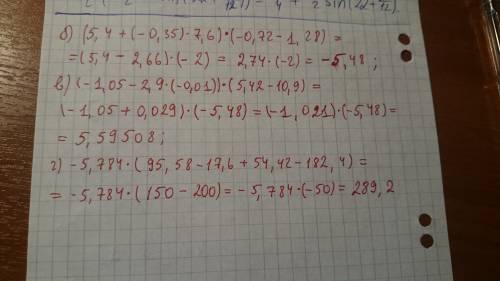 б) (5,4 + (-0,35) · 7,6) · (-0,72 - 1,28) =
= (5,4 - 2,66) · (-2) = 2,74 · (-2) = -5,48;
в) (-1,05 - 2,9 · (-0,01)) · (5,42 - 10,9) =
(-1,05 + 0,029) · (-5,48) = (-1,021) · (-5,48) =
= 5,59508;
г) -5,784 · (95,58 - 17,6 + 54,42 - 182,4) =
= -5,784 · (150 - 200) = -5,784 · (-50) = 289,2